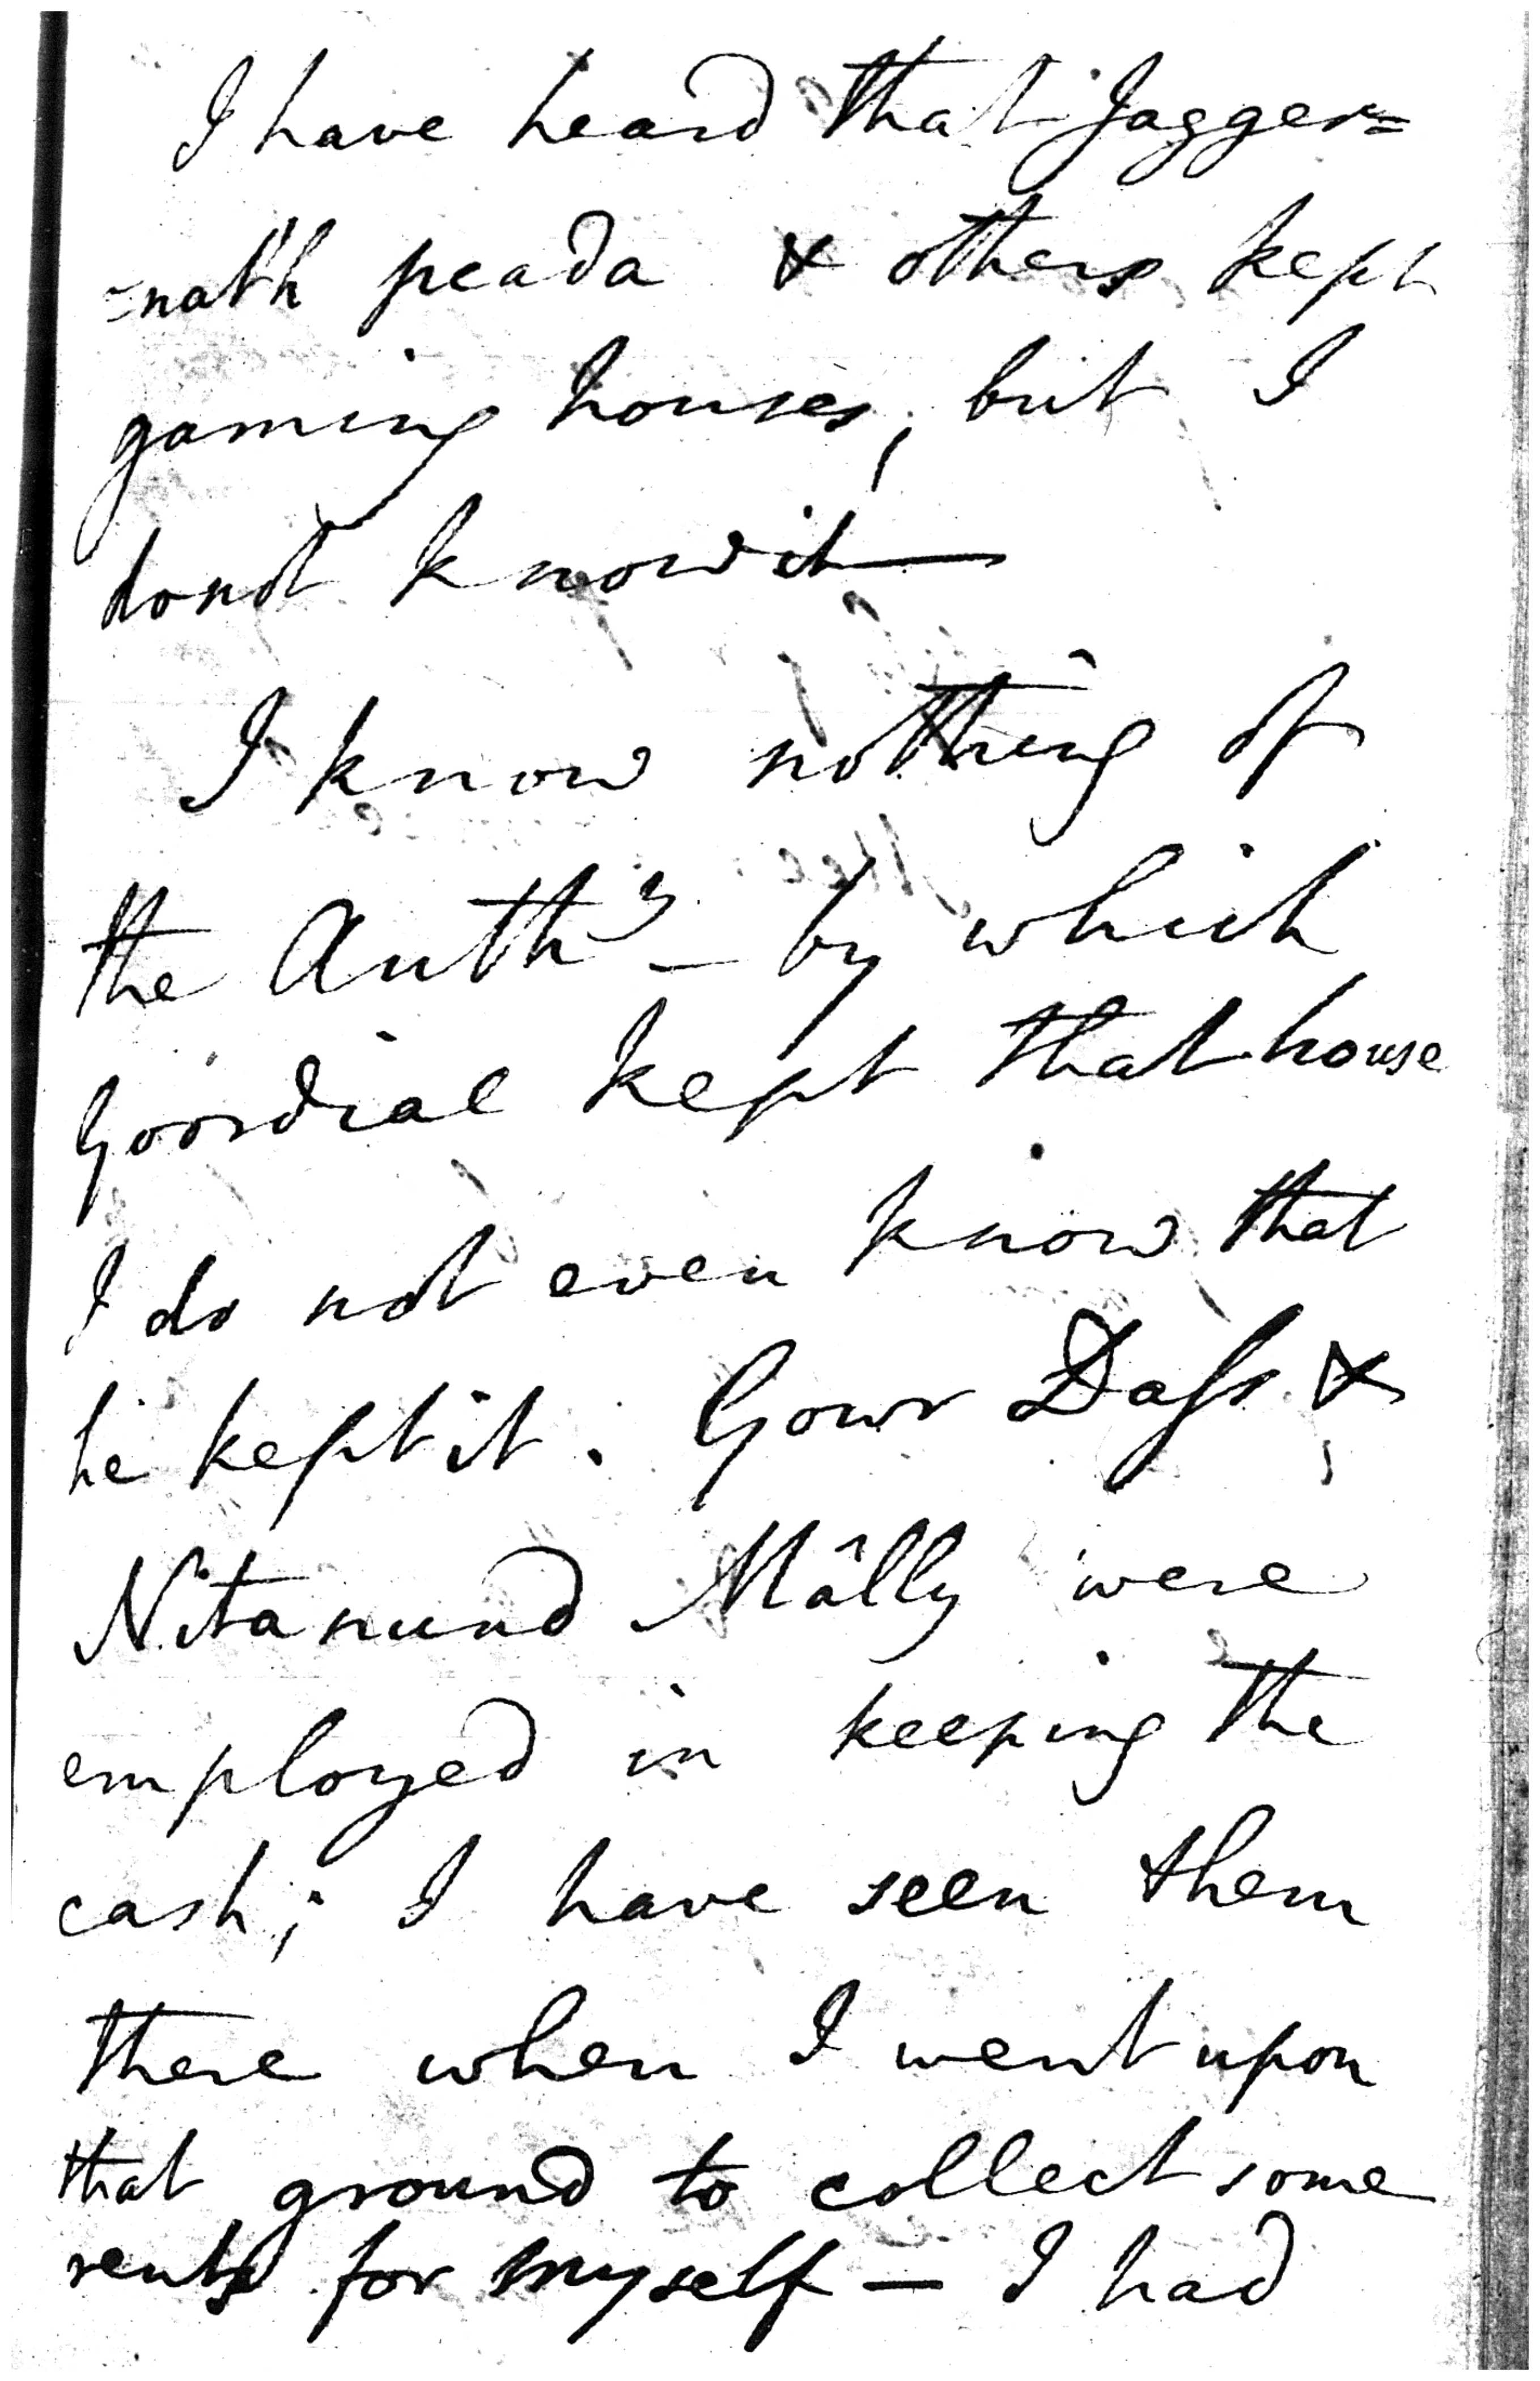 I have heard that Jagger=
=nath peada & others kept
gaming houses, but I
donot know it —
I know nothing of
the Authy. — by which
Goordial kept that house
I do not even know that
he kept it. Gour Dass &
Nitanund Mâlly were
employed in keeping the
cash; I have seen them
there when I went upon
that ground to collect some
rents for myself — I had